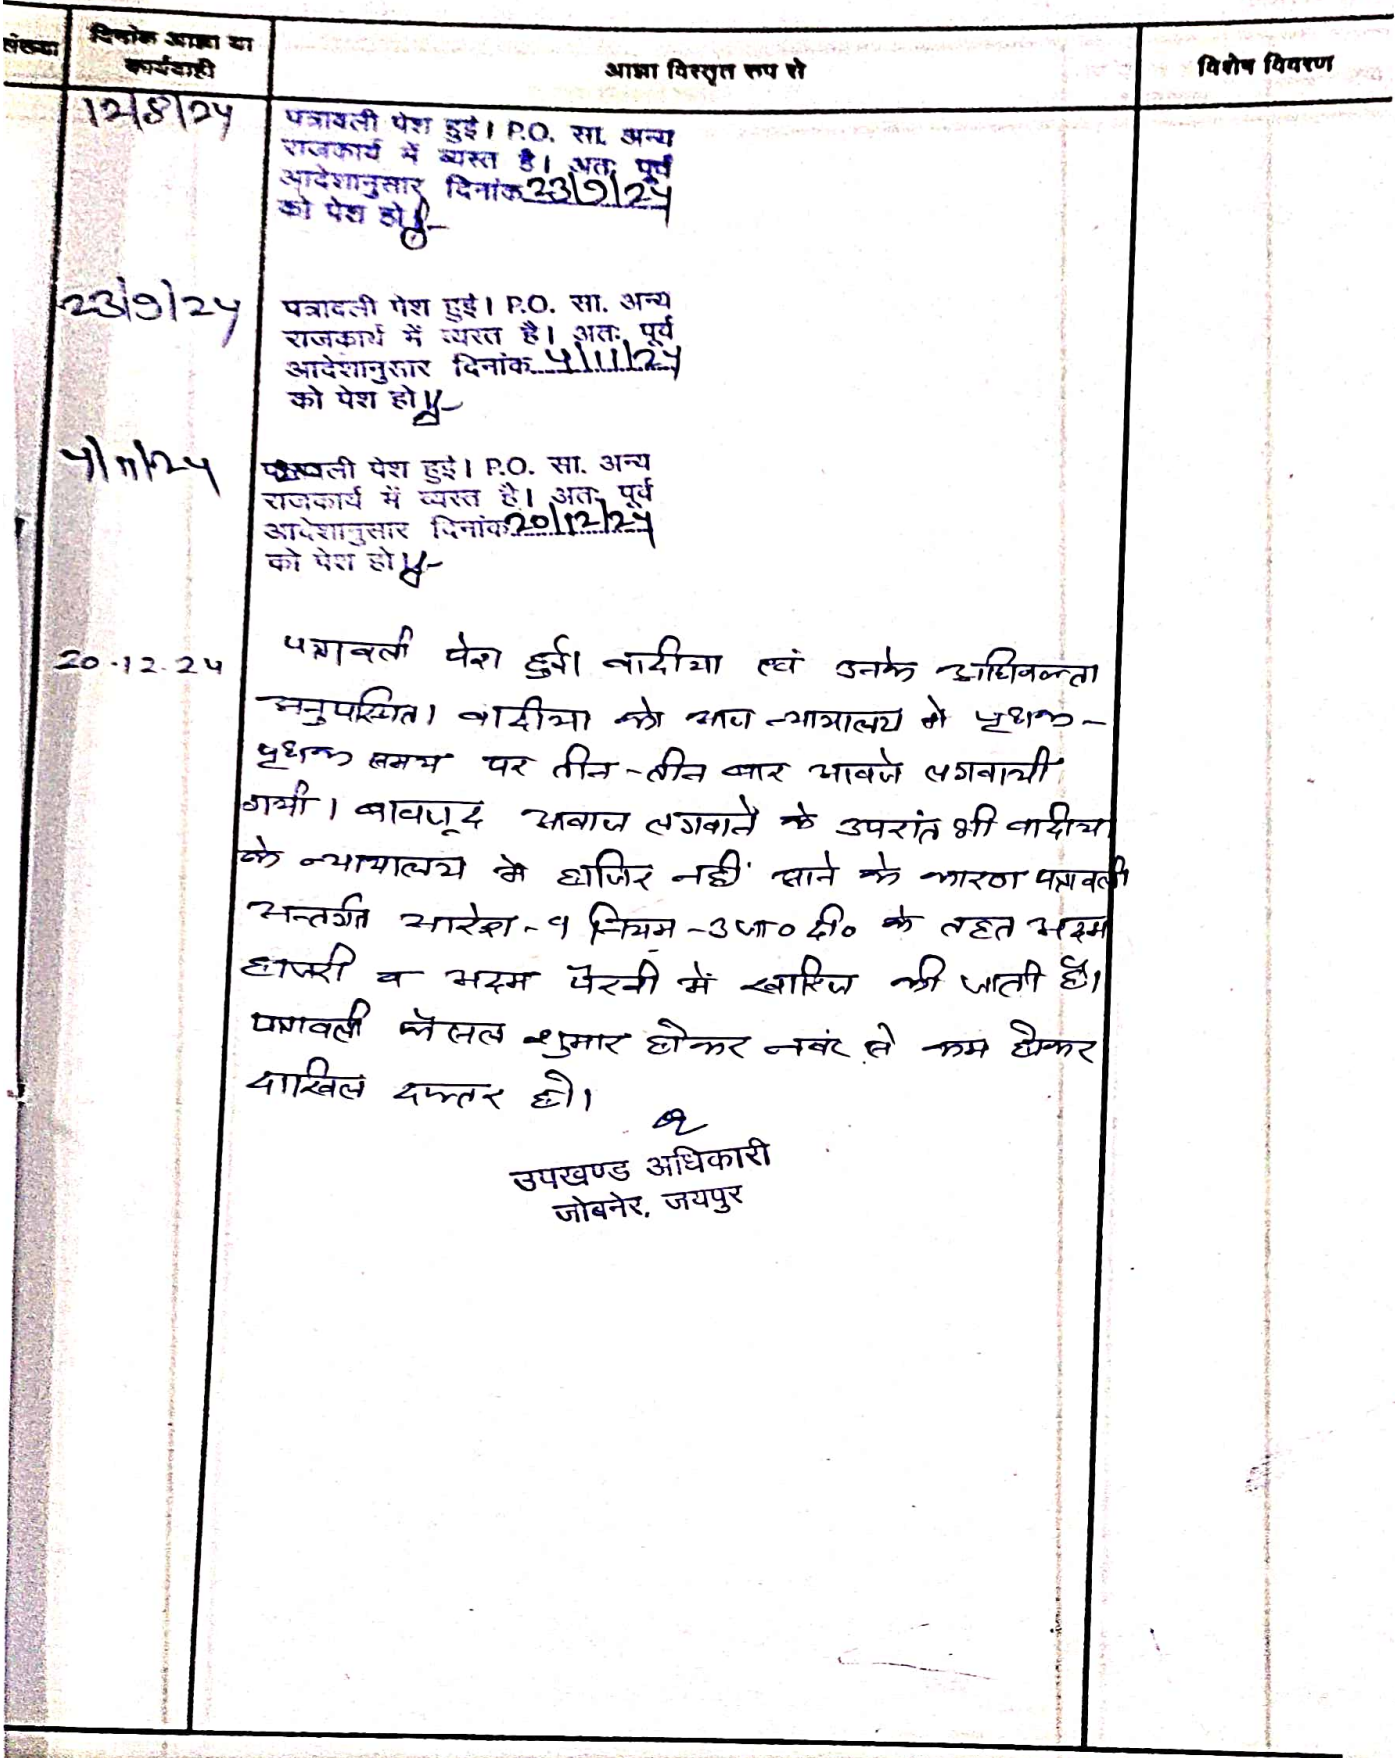 संख्या
दिनांक आज्ञा या
कार्यवाही
आज्ञा विस्तृत रूप से
विशेष विवरण
12/8/24
पत्रावली पेश हुई। P.O. सा. अन्य
राजकार्य में व्यस्त है। अतः पूर्व
आदेशानुसार दिनांक 23/9/24
को पेश हो
23/9/24
पत्रावली पेश हुई। P.O. सा. अन्य
राजकार्य में व्यस्त है। अतः पूर्व
आदेशानुसार दिनांक 4/11/24
को पेश हो
4/11/24
पत्रावली पेश हुई। P.O. सा. अन्य
राजकार्य में व्यस्त है। अतः पूर्व
आदेशानुसार दिनांक 20/12/24
को पेश हो
20.12.24
पत्रावली पेश हुई। वादीया एवं उनके अधिवक्ता
अनुपस्थित। वादीया को आज न्यायालय में पृथक-
पृथक समय पर तीन-तीन बार आवाजे लगवायी
गयी। बावजूद आवाज लगवाने के उपरांत भी वादीया
के न्यायालय में हाजिर नहीं आने के कारण पत्रावली
अन्तर्गत आदेश-9 नियम-3 जा० दी० के तहत अदम
हाजरी व अदम पैरवी में खारिज की जाती है।
पत्रावली फैसल शुमार होकर नबंर से कम होकर
दाखिल दफ्तर हो।
उपखण्ड अधिकारी
जोबनेर, जयपुर